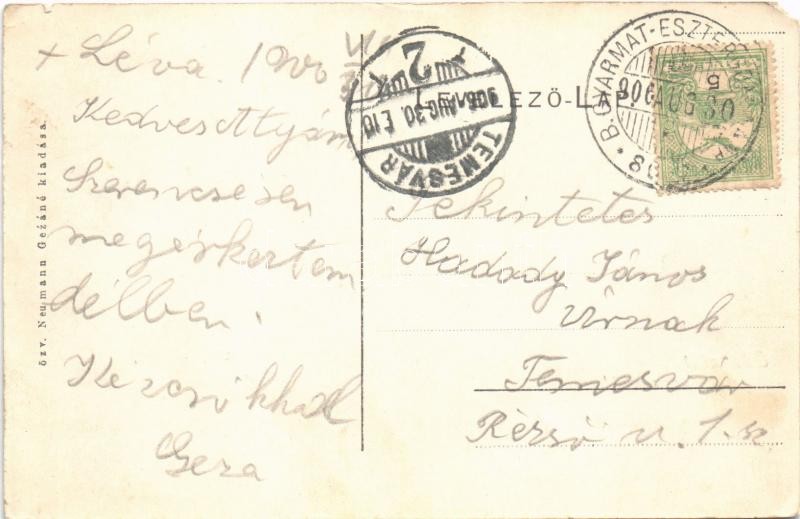 özv. Neumann Gézáné kiadása.
Léva. 1906 VIII/30
Kedves Atyám
Szerencsésen
megérkeztem
délben.
Kézcsókkal
Géza
TEMESVÁR
906 AUG. 30. E 10
2
LEVELEZŐ-LAP.
B.GYARMAT-ESZTERGOM
906 AUG 30
508
5
Tekintetes
Hadady János
Úrnak
Temesvár
Rézső u. 1. sz